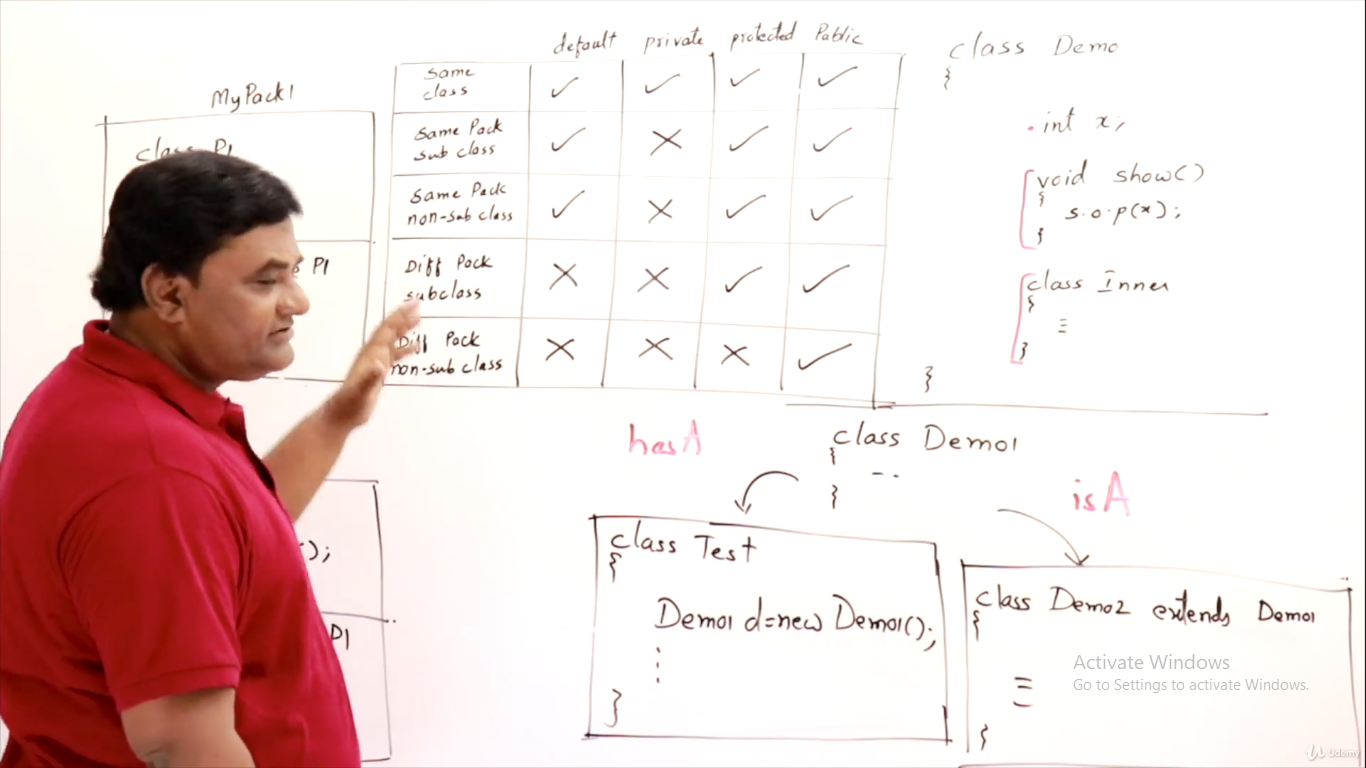 default private protected Public
Same class ✓ ✓ ✓ ✓
Same Pack sub class ✓ × ✓ ✓
Same Pack non-sub class ✓ × ✓ ✓
Diff Pack subclass × × ✓ ✓
Diff Pack non-sub class × × × ✓
MyPack1
class P1
P1
();
class Demo
{
int x;
void show()
{
s.o.p(x);
}
class Inner
{
}
}
hasA
class Demo1
{
}
isA
class Test
{
Demo1 d=new Demo1();
}
class Demo2 extends Demo1
{
}
Activate Windows
Go to Settings to activate Windows.
Udemy